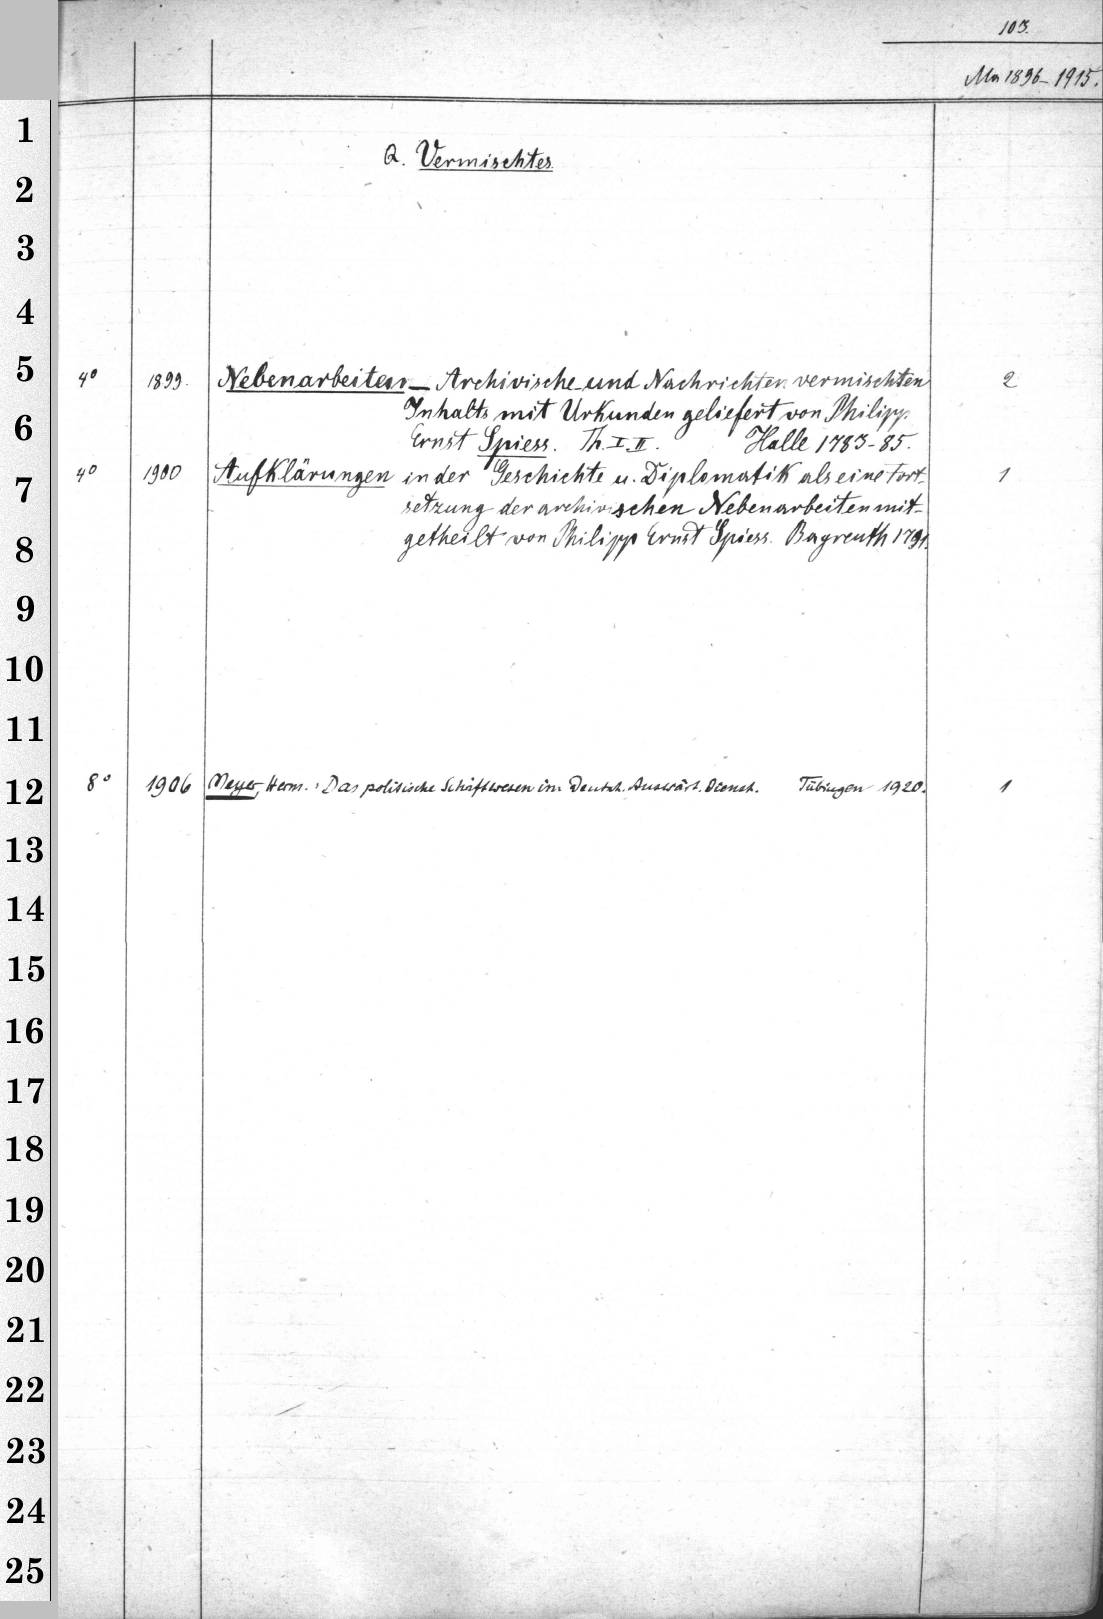 103.
Ma 1896-1915.
Q. Vermischtes.
4° 1899. Nebenarbeiten — Archivische und Nachrichten vermischten 2
Inhalts mit Urkunden geliefert von Philipp
Ernst Spiess. Th. I. II. Halle 1783-85.
4° 1900 Aufklärungen in der Geschichte u. Diplomatik als eine Fort- 1
setzung der archivischen Nebenarbeiten mit-
getheilt von Philipp Ernst Spiess. Bayreuth 1791.
8° 1906 Meyer, Herm.: Das politische Schriftwesen im Deutsch. Auswärt. Dienst. Tübingen 1920. 1
1
2
3
4
5
6
7
8
9
10
11
12
13
14
15
16
17
18
19
20
21
22
23
24
25